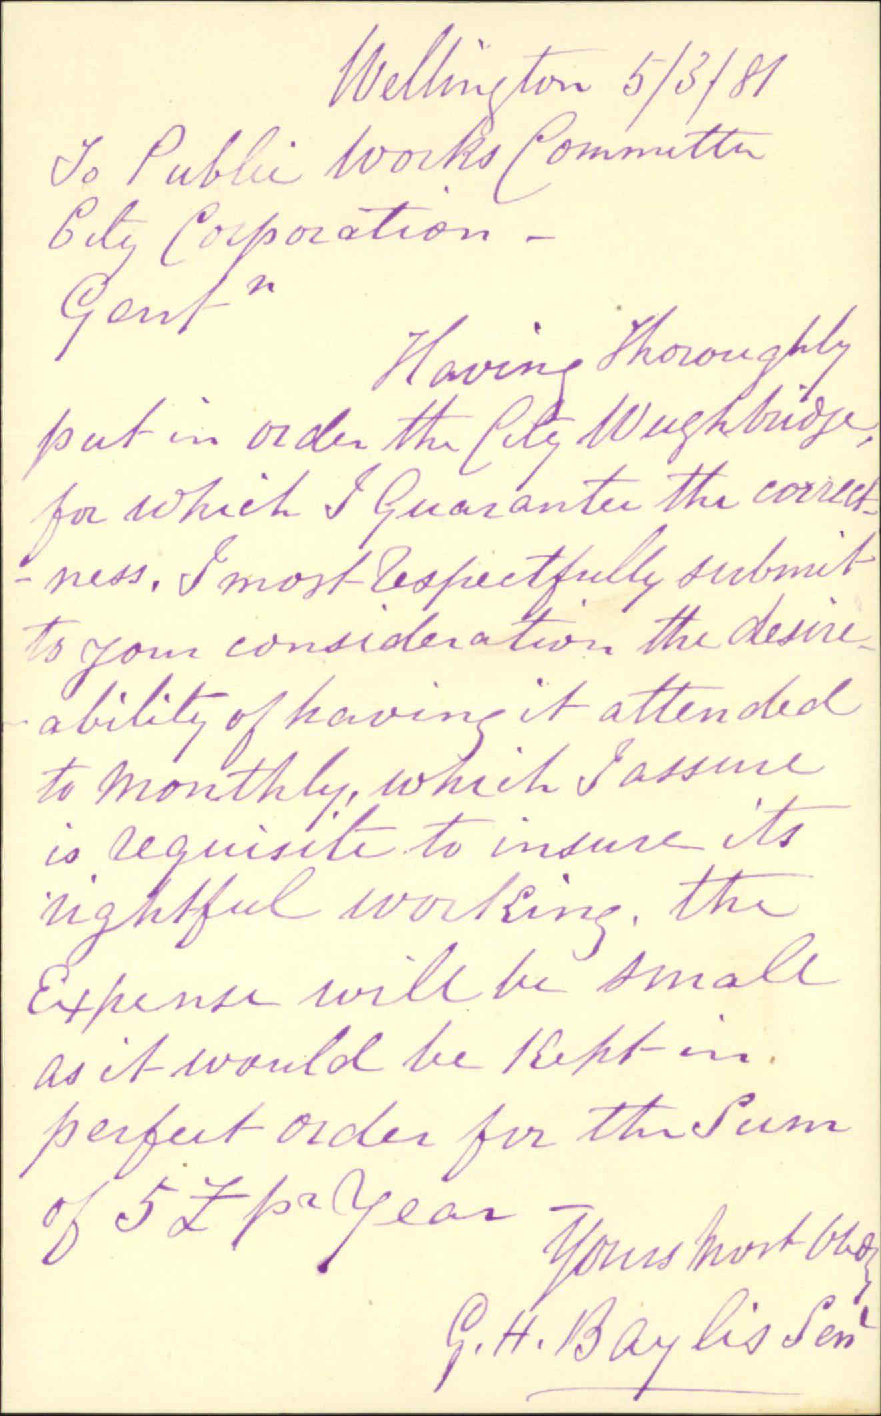 Wellington 5/3/81
To Public Works Committee
City Corporation -
Gentn
Having Thoroughly
put in order the City Weighbridge,
for which I Guarantee the correct-
- ness. I most respectfully submit
to your consideration the desire-
- ability of having it attended
to Monthly, which I assure
is requisite to insure its
rightful working. the
Expense will be small
as it would be Kept in
perfect order for the Sum
of 5 £ pr Year -
Yours most Obdy
G. H. Baylis Senr